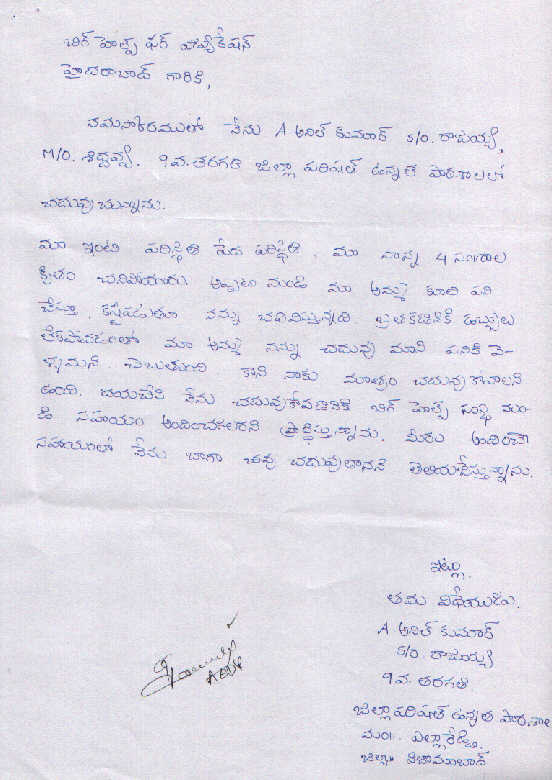 బిగ్ హెల్ప్ ఫర్ ఎడ్యుకేషన్
హైదరాబాద్ గారికి,
నమస్కారములతో నేను A అనిల్ కుమార్ S/O. రాజయ్య,
M/O. 9వ. తరగతి జిల్లా పరిషత్ ఉన్నత పాఠశాలలో
చదువుచున్నాను.
మా ఇంటి పరిస్థితి పేద పరిస్థితి. మా నాన్న 4 సం॥రాల
క్రితం చనిపోయారు. అప్పటి నుండి మా అమ్మ కూలి పని
చేస్తూ, కష్టపడుతూ నన్ను చదివిస్తున్నది. బ్రతకటానికి డబ్బులు
లేకపోవడంతో మా అమ్మ నన్ను చదువు మాని పనికి వె-
ళ్ళమని చెబుతుంది కాని నాకు మాత్రం చదువుకోవాలని
ఉంది. దయచేసి నేను చదువుకోవడానికి బిగ్ హెల్ప్ సంస్థ నుం-
డి సహాయం అందించగలరని ప్రార్థిస్తున్నాను. మీరు అందించే
సహాయంతో నేను బాగా చదువుతానని తెలియజేస్తున్నాను.
ఇట్లు
తమ విధేయుడు.
A అనిల్ కుమార్
S/O. రాజయ్య
9వ. తరగతి
జిల్లా పరిషత్ ఉన్నత పాఠశాల
మం. ఎల్లారెడ్డి.
జిల్లా నిజామాబాద్